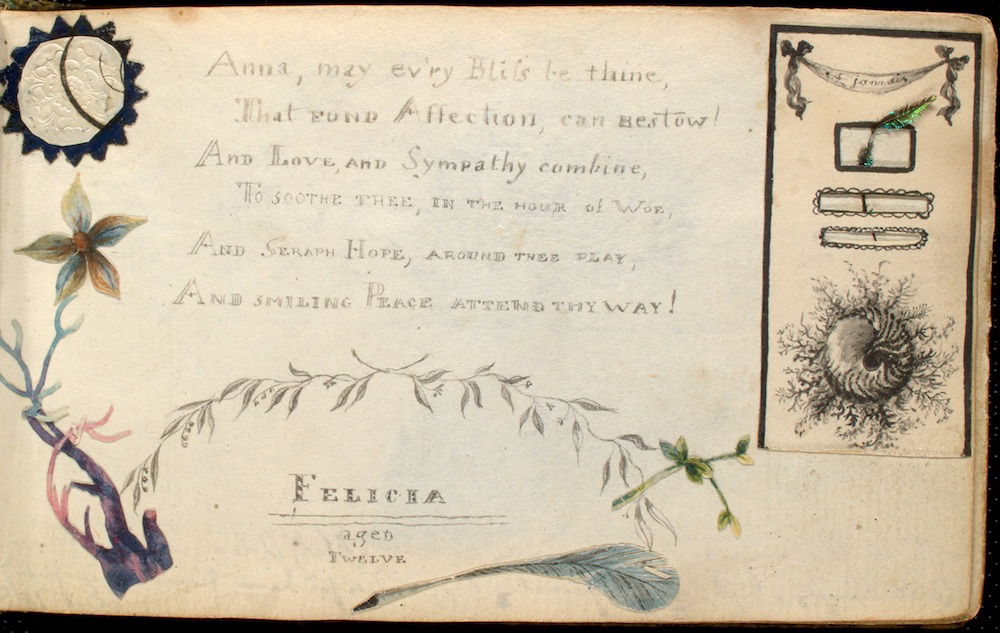 Anna, may ev'ry Bliſs be thine,
That FOND Affection, can BESTOW!
AND LOVE, AND Sympathy combine,
TO SOOTHE THEE, IN THE HOUR of WOE,
AND SERAPH HOPE, AROUND THEE PLAY,
AND SMILING PEACE ATTEND THY WAY!
FELICIA
aged
TWELVE
A jamais